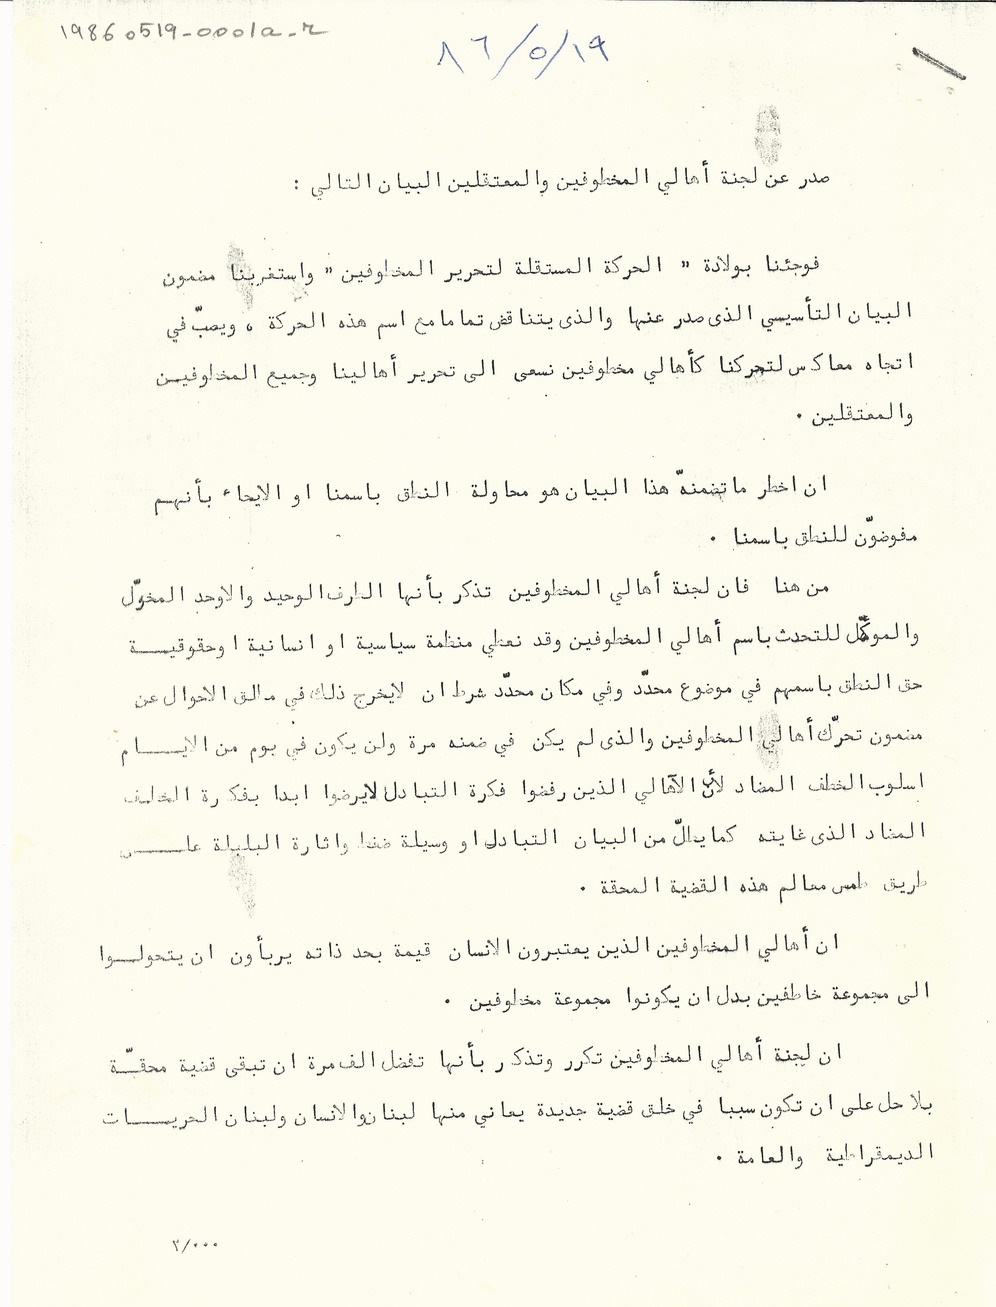 19860519-0001a-r
٨٦/٥/١٩
صدر عن لجنة أهالي المخطوفين والمعتقلين البيان التالي :
فوجئنا بولادة " الحركة المستقلة لتحرير المخطوفين " واستغربنا مضمون
البيان التأسيسي الذى صدر عنها والذى يتناقض تماما مع اسم هذه الحركة ، ويصبّ في
اتجاه معاكس لتحركنا كأهالي مخطوفين نسعى الى تحرير أهالينا وجميع المخطوفيــن
والمعتقلين .
ان اخطر ما تضمنهّ هذا البيان هو محاولة النطق باسمنا او الايحاء بأنهــم
مفوضوّن للنطق باسمنا .
من هنا فان لجنة أهالي المخطوفين تذكر بأنها الطرف الوحيد والاوحد المخوّل
والموكّل للتحدث باسم أهالي المخطوفين وقد نعطي منظمة سياسية او انسانية اوحقوقيــة
حق النطق باسمهم في موضوع محدّد وفي مكان محدّد شرط ان لايخرج ذلك في مطلق الاحوال عن
مضمون تحرّك أهالي المخطوفين والذى لم يكن في ضمنه مرة ولن يكون في يوم من الايــــام
اسلوب الخطف المضاد لأن الآهالي الذين رفضوا فكرة التبادل لايرضوا ابدا بفكرة الخطف
المضاد الذى غايته كما يطلّ من البيان التبادل او وسيلة ضغط واثارة البلبلة علــــى
طريق طمس معالم هذه القضية المحقة .
ان أهالي المخطوفين الذين يعتبرون الانسان قيمة بحد ذاته يربأون ان يتحولــوا
الى مجموعة خاطفين بدل ان يكونوا مجموعة مخطوفين .
ان لجنة أهالي المخطوفين تكرر وتذكر بأنها تفضل الف مرة ان تبقى قضية محقــّة
بلا حل على ان تكون سببا في خلق قضية جديدة يعاني منها لبنان والانسان ولبنان الحريــــات
الديمقراطية والعامة .
٢/٠٠٠